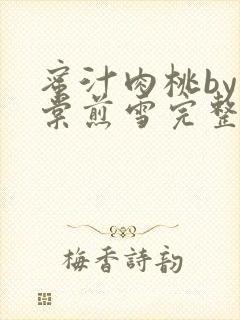 蜜汁肉桃by
棠煎雪完整
梅香詩韵